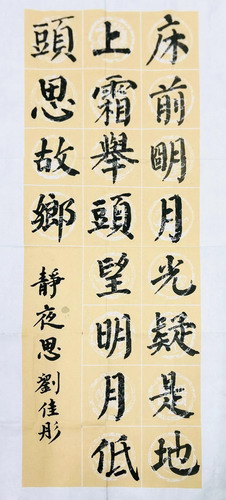 床前明月光疑是地
上霜舉頭望明月低
頭思故鄉
靜夜思劉佳彤